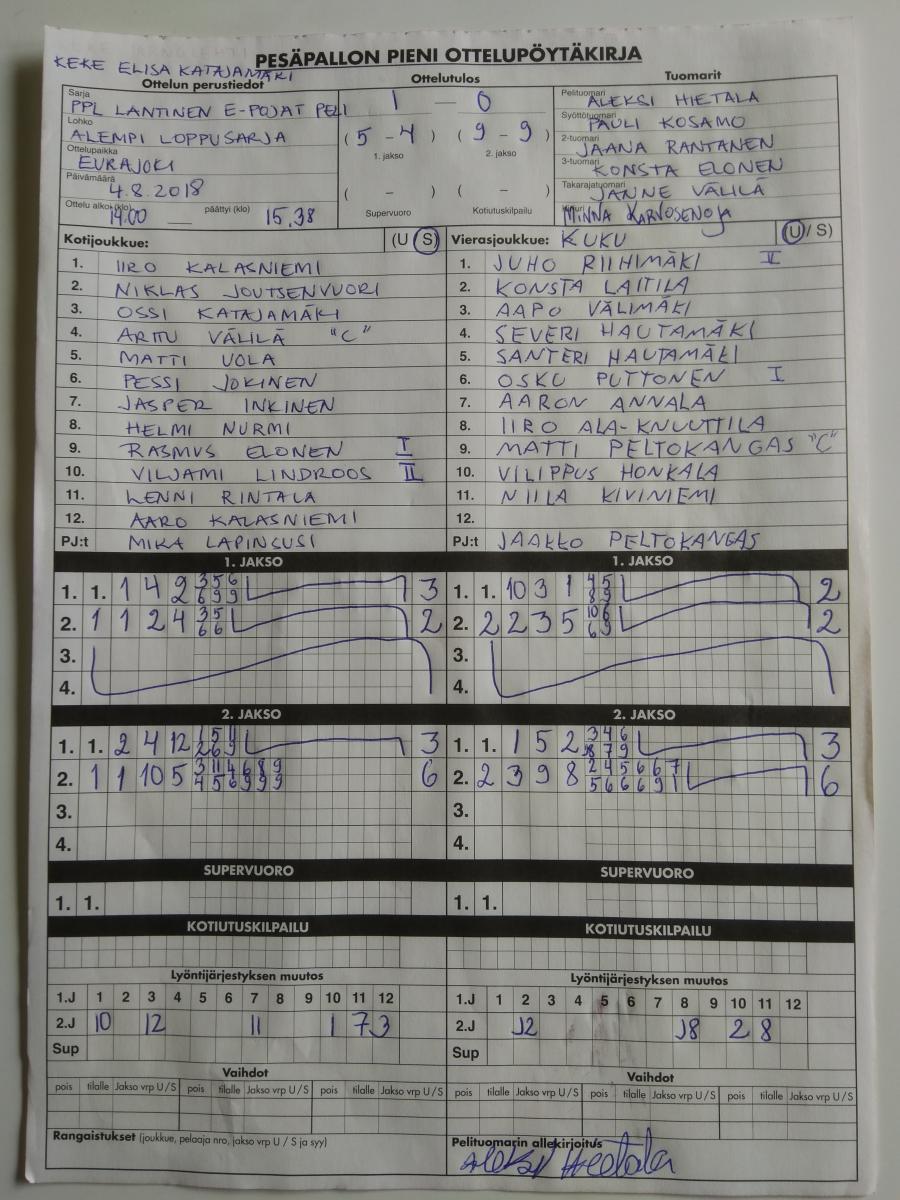 PESÄPALLON PIENI OTTELUPÖYTÄKIRJA
KEKE ELISA KATAJAMÄKI
Ottelun perustiedot
Ottelutulos
Tuomarit
Sarja
PPL LÄNTINEN E-POJAT PELI
Lohko
ALEMPI LOPPUSARJA
Ottelupaikka
EURAJOKI
Päivämäärä
4.8.2018
Ottelu alkoi (klo) 14.00 päättyi (klo) 15.38
1 – 0
( 5 - 4 ) ( 9 - 9 )
1. jakso 2. jakso
( - ) ( - )
Supervuoro Kotiutuskilpailu
Pelituomari ALEKSI HIETALA
Syöttötuomari PAULI KOSAMO
2-tuomari JAANA RANTANEN
3-tuomari KONSTA ELONEN
Takarajatuomari JANNE VÄLILÄ
MINNA KARVOSENOJA
Kotijoukkue: (U S)
1. IIRO KALASNIEMI
2. NIKLAS JOUTSENVUORI
3. OSSI KATAJAMÄKI
4. ARTTU VÄLILÄ "C"
5. MATTI UOLA
6. PESSI JOKINEN
7. JASPER INKINEN
8. HELMI NURMI
9. RASMUS ELONEN I
10. VILJAMI LINDROOS II
11. LENNI RINTALA
12. AARO KALASNIEMI
PJ:t MIKA LAPINSUSI
Vierasjoukkue: KUKU (U / S)
1. JUHO RIIHIMÄKI II
2. KONSTA LAITILA
3. AAPO VÄLIMÄKI
4. SEVERI HAUTAMÄKI
5. SANTERI HAUTAMÄKI
6. OSKU PUTTONEN I
7. AARON ANNALA
8. IIRO ALA-KNUUTTILA
9. MATTI PELTOKANGAS "C"
10. VILIPPUS HONKALA
11. NIILA KIVINIEMI
12.
PJ:t JAAKKO PELTOKANGAS
1. JAKSO
1. 1. 1 4 2 3 5 6 6 9 9 3
2. 1 1 2 4 3 5 6 6 2
3.
4.
1. JAKSO
1. 1. 10 3 1 4 5 8 9 2
2. 2 2 3 5 10 6 6 9 2
3.
4.
2. JAKSO
1. 1. 2 4 12 1 5 11 2 6 9 3
2. 1 1 10 5 3 11 4 6 8 9 4 5 6 9 9 9 6
3.
4.
2. JAKSO
1. 1. 1 5 2 3 4 6 8 7 9 3
2. 2 3 9 8 2 4 5 6 6 7 5 6 6 6 9 1 6
3.
4.
SUPERVUORO
1. 1.
SUPERVUORO
1. 1.
KOTIUTUSKILPAILU
KOTIUTUSKILPAILU
Lyöntijärjestyksen muutos
1.J 1 2 3 4 5 6 7 8 9 10 11 12
2.J 10 12 11 1 7 3
Sup
Lyöntijärjestyksen muutos
1.J 1 2 3 4 5 6 7 8 9 10 11 12
2.J 2 8
Sup
Vaihdot
pois tilalle Jakso vrp U / S pois tilalle Jakso vrp U / S pois tilalle Jakso vrp U / S
Vaihdot
pois tilalle Jakso vrp U / S pois tilalle Jakso vrp U / S pois tilalle Jakso vrp U / S
Rangaistukset (joukkue, pelaaja nro, jakso vrp U / S ja syy)
Pelituomarin allekirjoitus
Aleksi Hietala